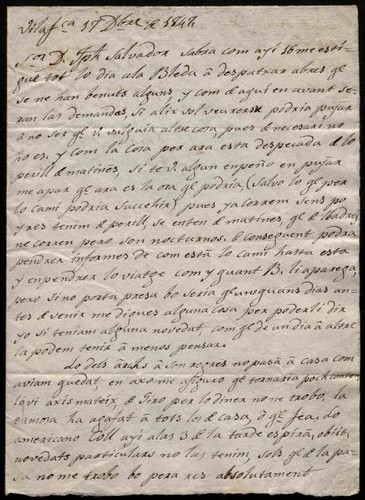 Vilafca 17 Dbre de 1847
Sor D. Jph Salvador Sabra com ayi 16 me esti-
gue tot lo dia a la Bleda á despatxar abres qe
se ne han venuts alguns, y com de aqui en avant se-
ran las demandes, si ali sol veurersk podria pujar
á no ser qe V. vulguia altre cosa, pues de necesari no
ho es. y com la cosa per ara esta despecada de lo
perill de matines, si te V. algun enpeño en pujar
me apar qe ara es la ora qe podria, (Salvo lo qe per
lo cami podria Succehir) pues ya correm Sens po
y res tenim de perill, se enten de matines qe de lladres
ne corren pero son nocturnos. de consequent podra
pendrer informes de com está lo camí hasta esta
y enpendrer lo viatge com y quant B. li aparega
pero si no porta presa bo seria qe uns quans dias an-
tes de venir me digues alguna cosa per poderlo dir
yo si teniam alguna novedat, com qe de un dia á altre
la podem tenir á menos pensar.
lo dels á son no pasá á casa com
aviam quedat, en axo me afiguro qe tornaria
aqui axis mateix, de Giro per lo diner no ne trobo, la
ha agafat á tots los de casa, ó qe fea. do
americano Coll ayi a las 3 de la tarde espirá,
novedats particulars no las tenim, sols qe de la pa-
sa no me trobo bo pera res absolutament